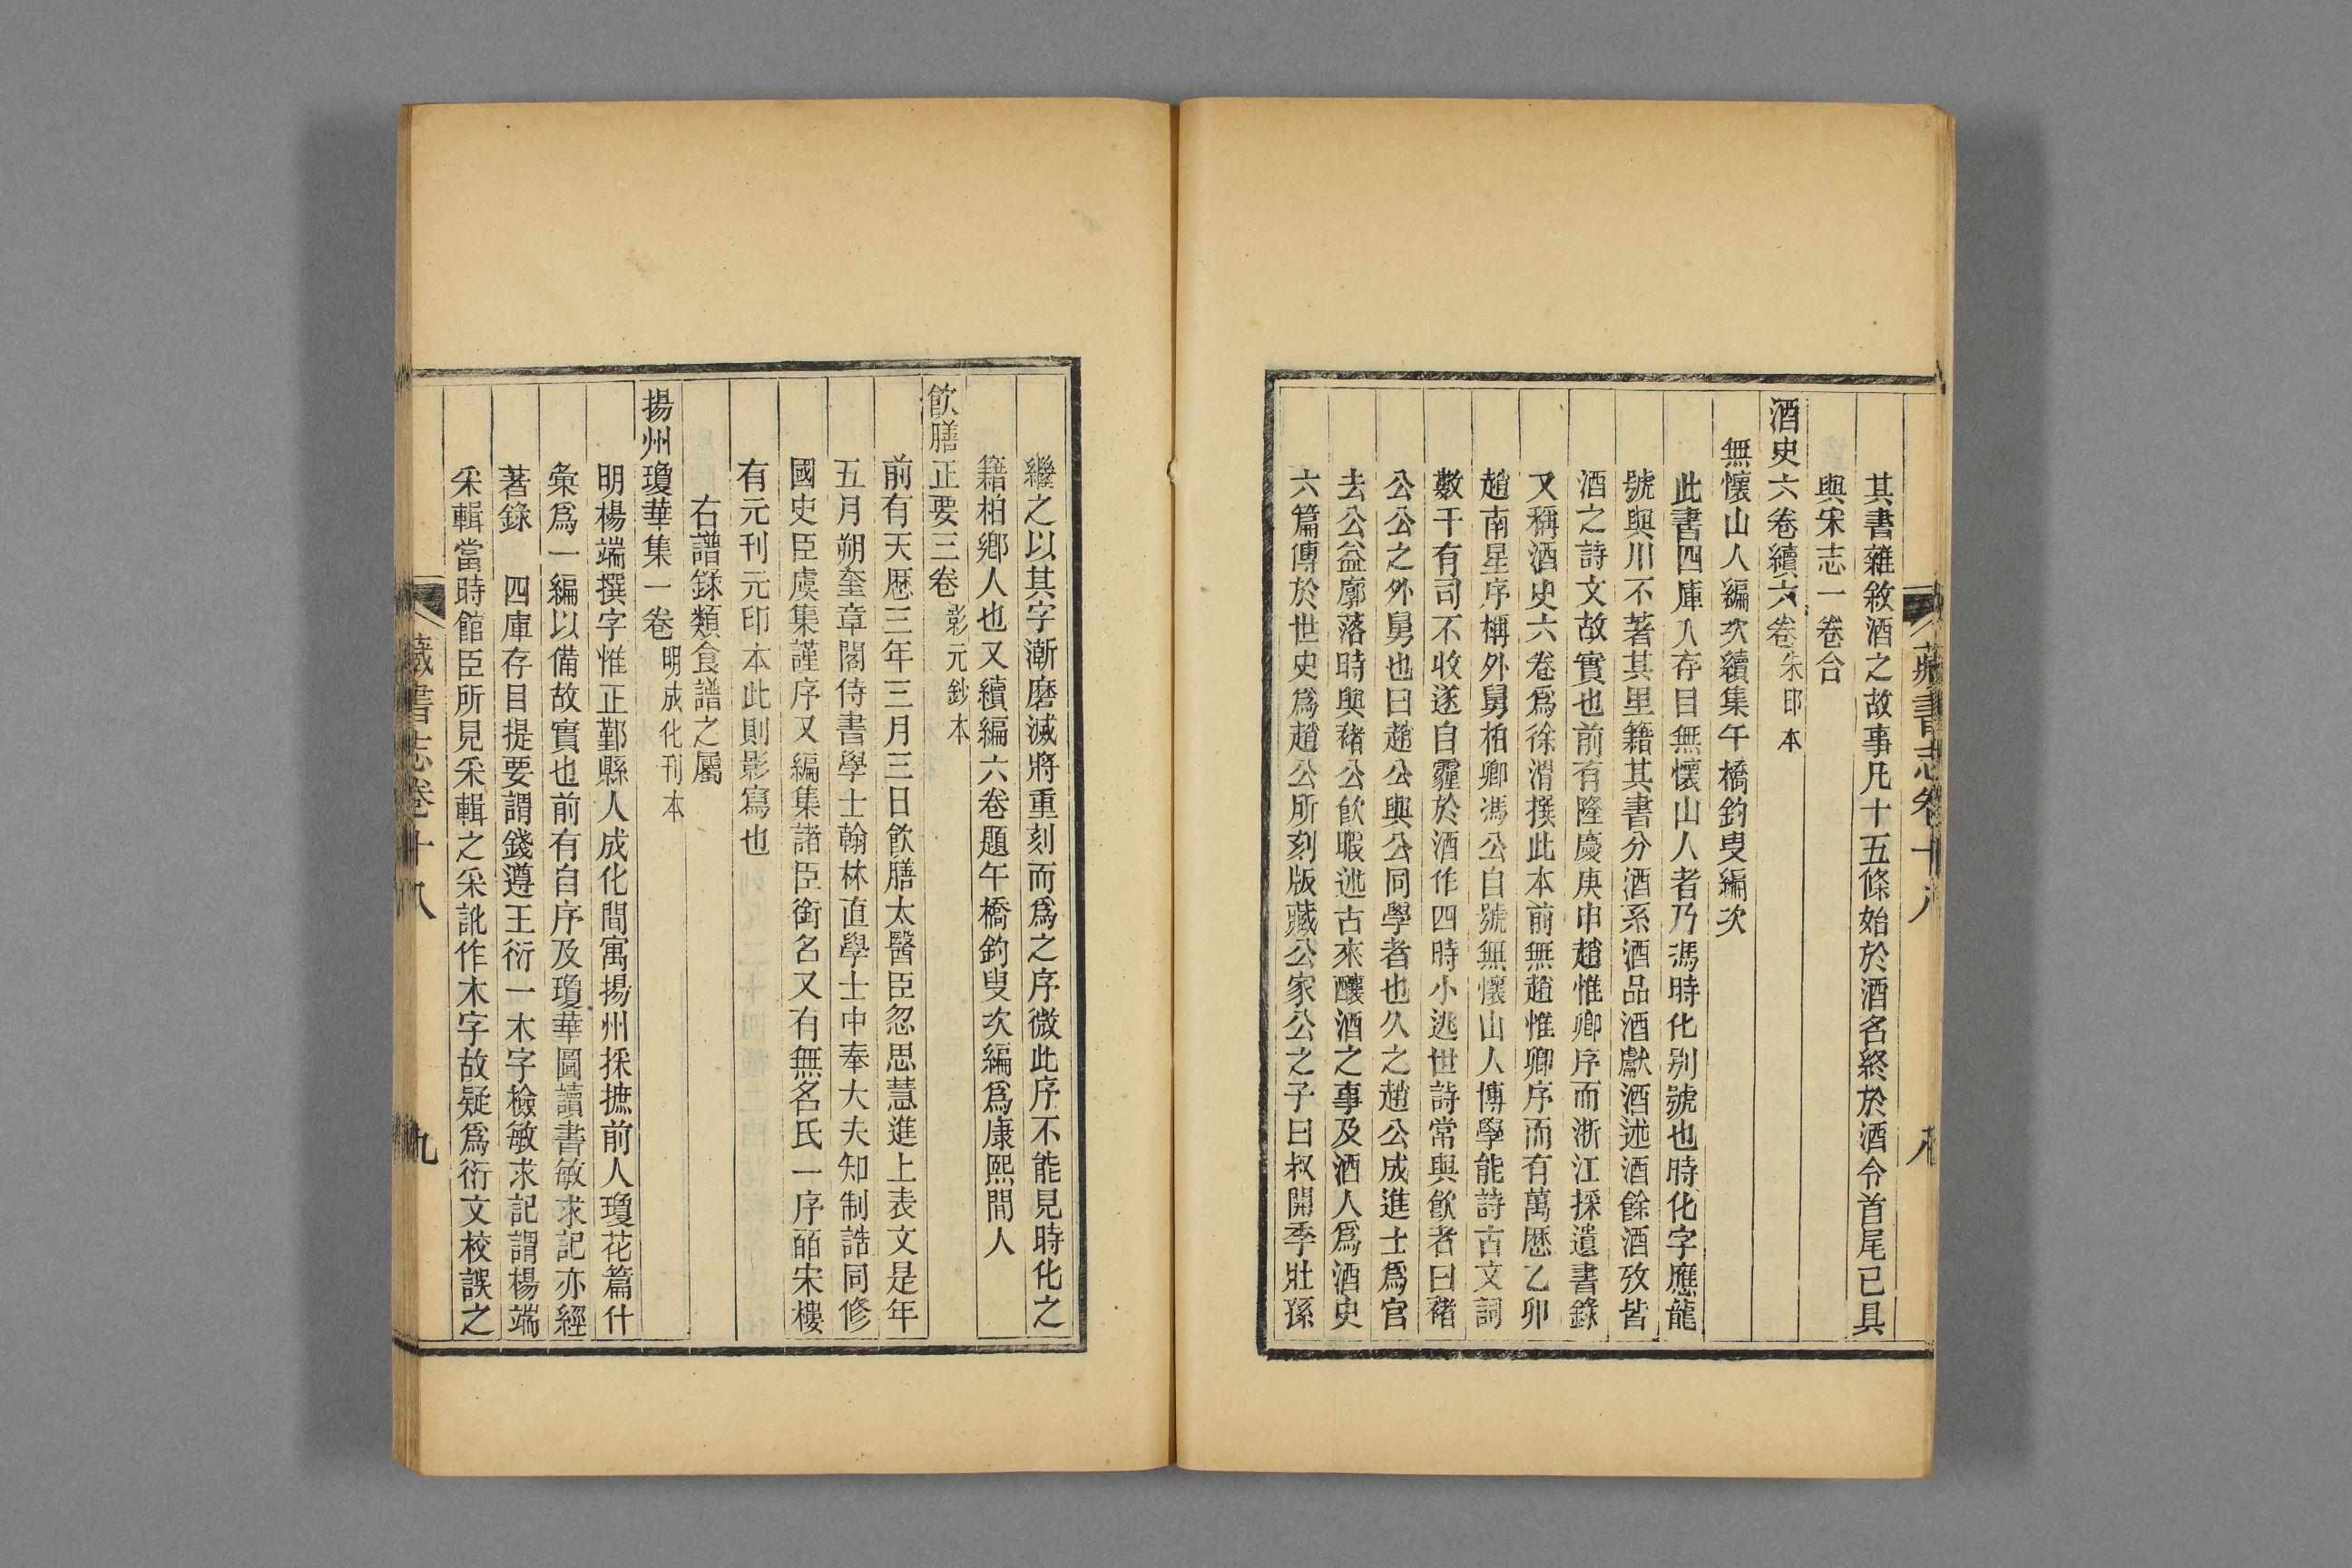 其書雜敘酒之故事凡十五條始於酒名終於酒令首尾已具
與宋志一卷合
酒史六卷續六卷朱印本
無懷山人編次續集午橋釣叟編次
此書四庫入存目無懷山人者乃馮時化別號也時化字應龍
號與川不著其里籍其書分酒系酒品酒獻酒述酒餘酒攷皆
酒之詩文故實也前有隆慶庚申趙惟卿序而浙江採遺書錄
又稱酒史六卷爲徐渭撰此本前無趙惟卿序而有萬厯乙卯
趙南星序稱外舅柏鄉馮公自號無懷山人博學能詩古文詞
數干有司不收遂自靃於酒作四時小逃世詩常與飮者曰褚
公公之外舅也曰趙公與公同學者也久之趙公成進士爲官
去公益廓落時與褚公飮暇述古來釀酒之事及酒人爲酒史
六篇傳於世史爲趙公所刻版藏公家公之子曰叔開季壯孫
藏書志卷十八
八
繼之以其字漸磨滅將重刻而爲之序微此序不能見時化之
籍柏鄉人也又續編六卷題午橋釣叟次編爲康熙間人
飮膳正要三卷影元鈔本
前有天厯三年三月三日飮膳太醫臣忽思慧進上表文是年
五月朔奎章閣侍書學士翰林直學士中奉大夫知制誥同修
國史臣虞集謹序又編集諸臣銜名又有無名氏一序皕宋樓
有元刊元印本此則影寫也
右譜錄類食譜之屬
揚州瓊華集一卷明成化刊本
明楊端撰字惟正鄞縣人成化間寓揚州採摭前人瓊花篇什
彙爲一編以備故實也前有自序及瓊華圖讀書敏求記亦經
著錄　四庫存目提要謂錢遵王衍一木字檢敏求記謂楊端
采輯當時館臣所見采輯之采訛作木字故疑爲衍文校誤之
藏書志卷十八
九